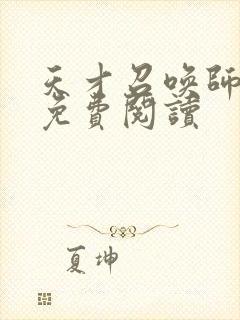 天才召喚師
免費閱讀
夏坤